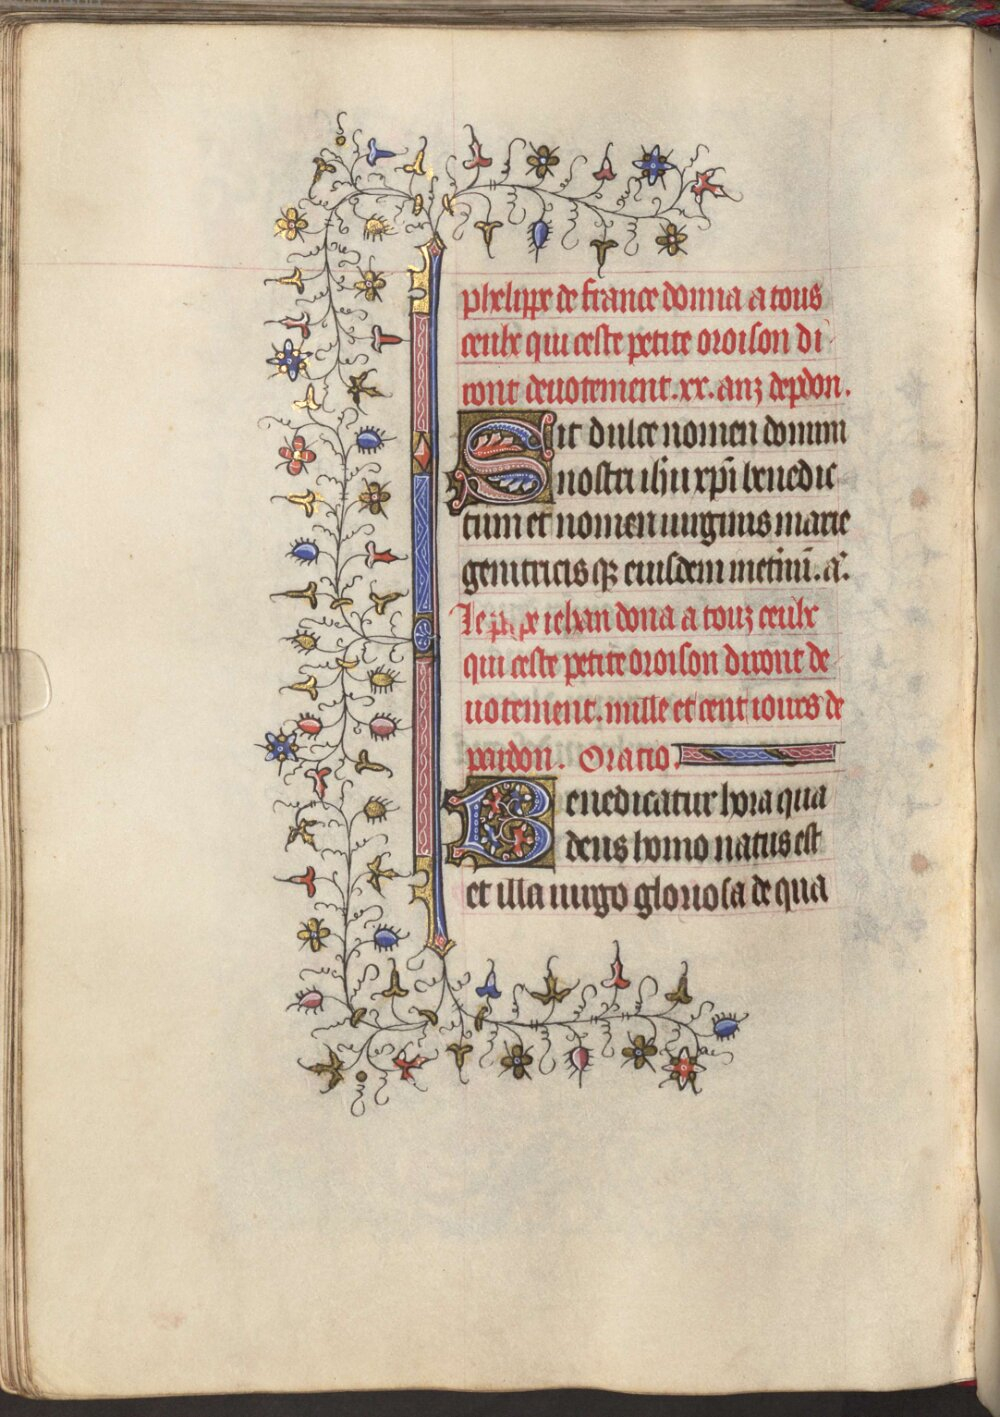 phelippe de france donna a tous
ceulx qui ceste petite oroison di
ront deuotement .xx. anz de pdon.
Sit dulce nomen domini
nostri ihu xpi benedic
tum et nomen uirginis marie
genitricis qz eiusdem in eternū. a.
Le pape iehan dona a touz ceulx
qui ceste petite oroison diront de
uotement. mille et cent iours de
pardon. Oratio.
Benedicatur hora qua
deus homo natus est
et illa uirgo gloriosa de qua